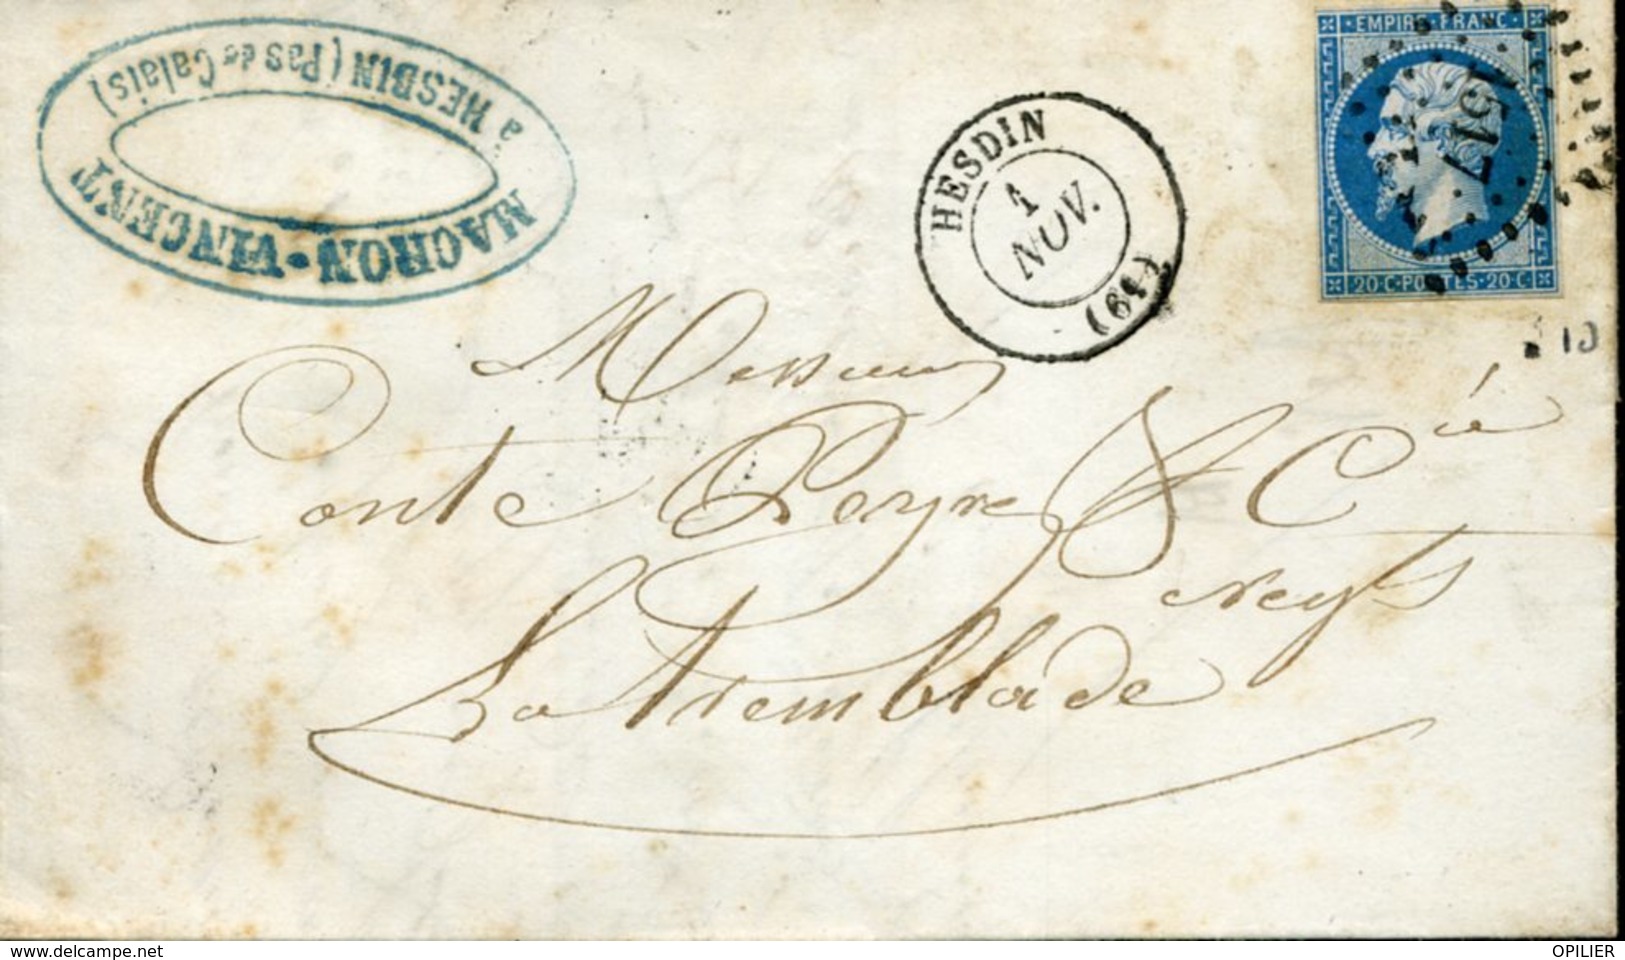 MACRON-VINCENT
à HESDIN (Pas de Calais)
HESDIN
1
NOV.
(61)
EMPIRE FRANC
1517
20·C·POSTES·20·C
Messieurs
Conte Peyre & Cie
La Tremblade
www.delcampe.net
OPILIER